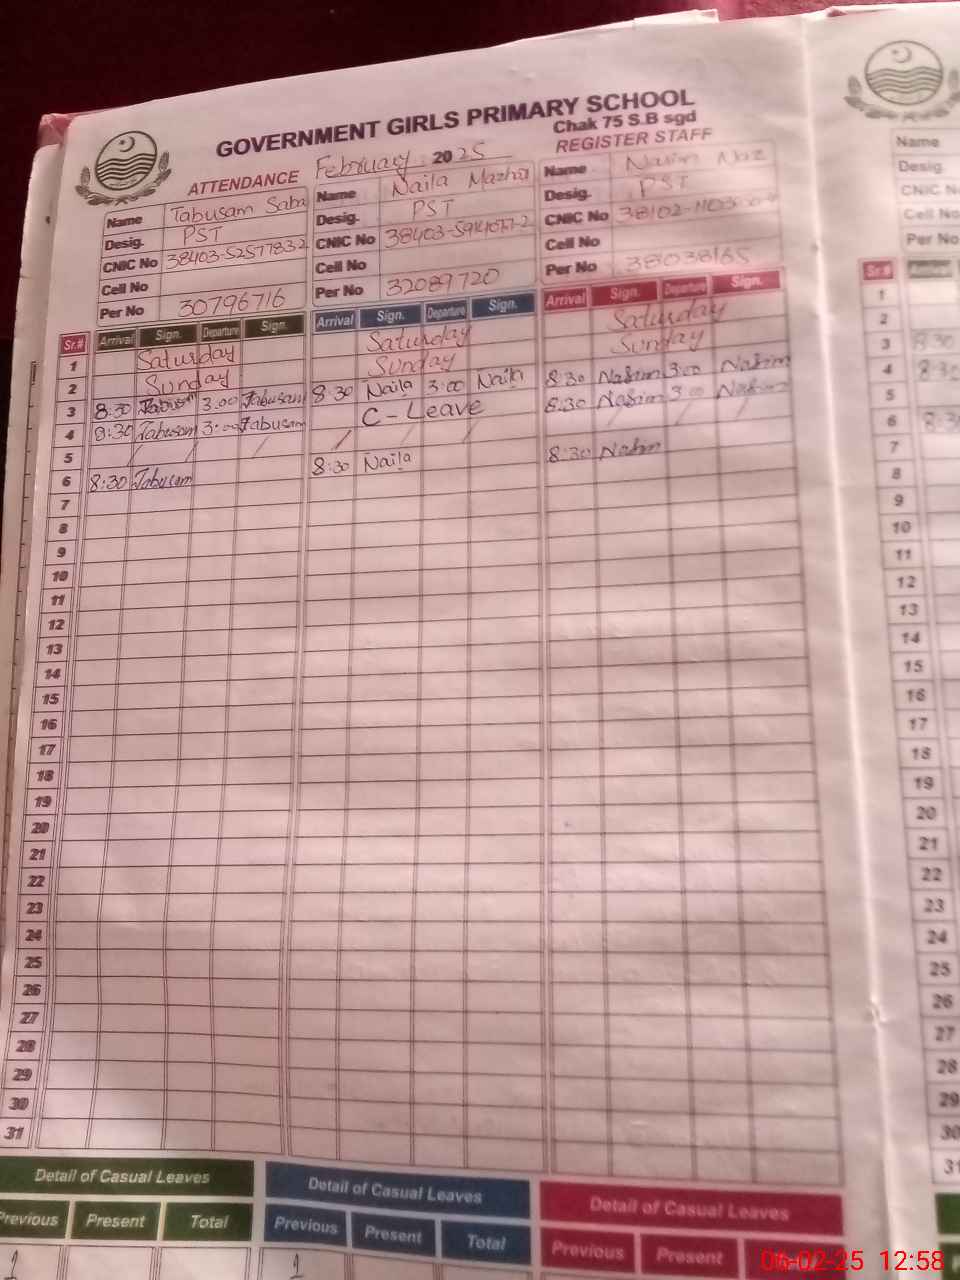 GOVERNMENT GIRLS PRIMARY SCHOOL
Chak 75 S.B sgd
ATTENDANCE February 2025 REGISTER STAFF
Name Tabusam Saba
Desig. PST
CNIC No 38403-5257783 2
Cell No
Per No 30796716
Name Naila Mazhar
Desig. PST
CNIC No
Cell No
Per No 32089720
Name Nasim Naz
Desig. PST
CNIC No
Cell No
Per No 38038165
Name
Desig.
CNIC N
Cell No
Per No
Sr.# Arrival Sign. Departure Sign. Arrival Sign. Departure Sign. Arrival Sign. Departure Sign. Sr.# Arrival
1 Saturday Saturday Saturday 1
2 Sunday Sunday Sunday 2
3 8:30 Tabusam 3:00 Tabusam 8:30 Naila 3:00 Naila 8:30 Nasim 3:00 Nasim 3 8:30
4 8:30 Tabusam 3:00 Tabusam C-Leave 8:30 Nasim 3:00 Nasim 4 8:30
5 / / / / / / / / / 5
6 8:30 Tabusam 8:30 Naila 8:30 Nasim 6 8:3
7 7
8 8
9 9
10 10
11 11
12 12
13 13
14 14
15 15
16 16
17 17
18 18
19 19
20 20
21 21
22 22
23 23
24 24
25 25
26 26
27 27
28 28
29 29
30 30
31 31
Detail of Casual Leaves Detail of Casual Leaves Detail of Casual Leaves
Previous Present Total Previous Present Total Previous Present
1 1
06-02-25 12:58